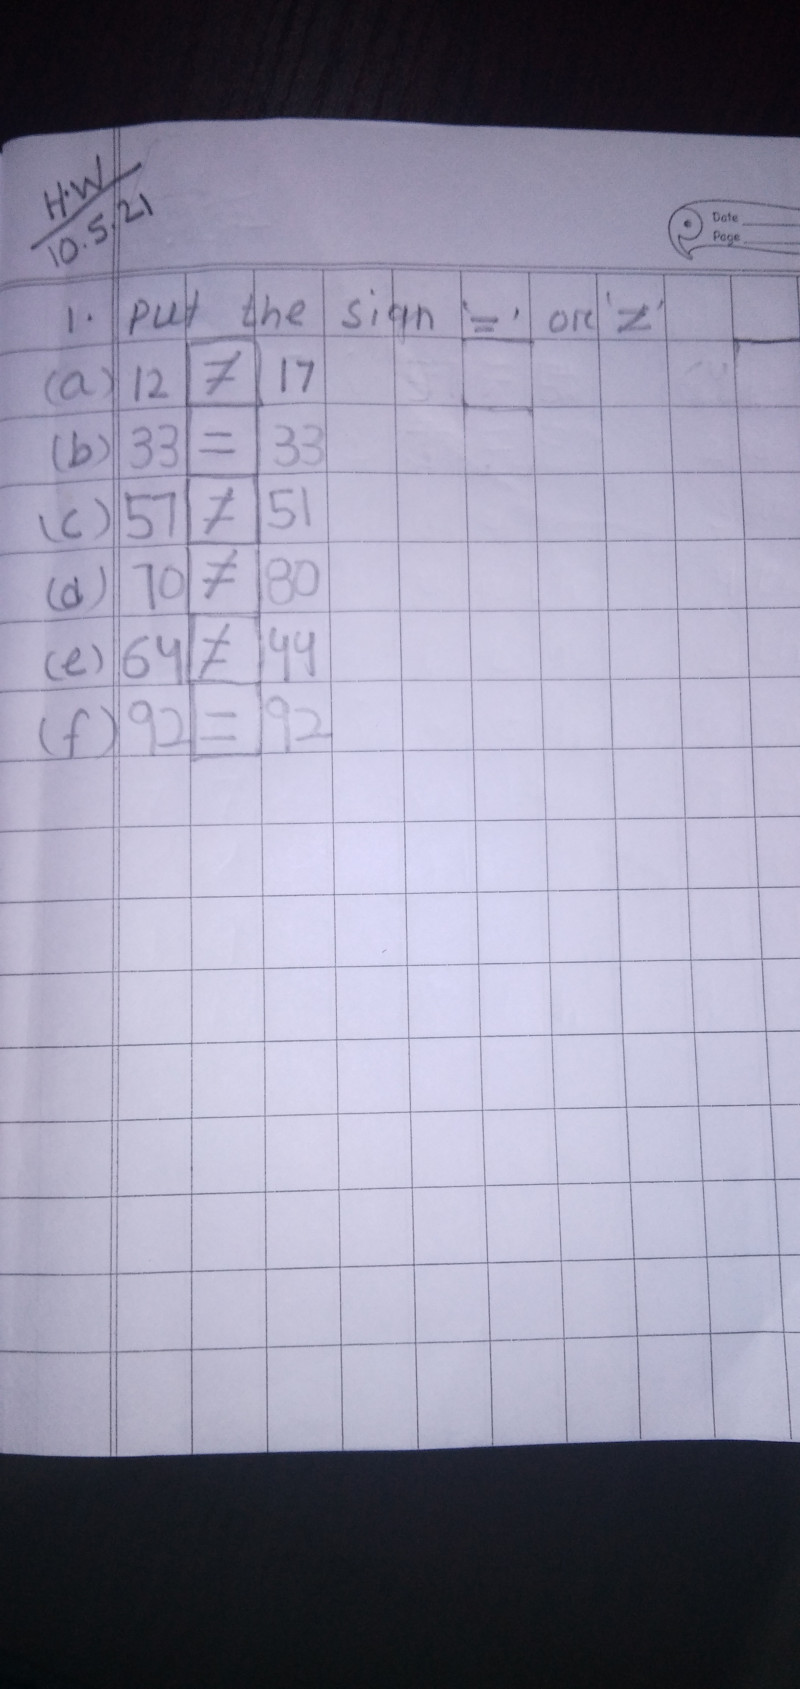 H.W
10.5.21
Date
Page
1. Put the sign '=' or '≠'
(a) 12 ≠ 17
(b) 33 = 33
(c) 57 ≠ 51
(d) 70 ≠ 80
(e) 64 ≠ 44
(f) 92 = 92